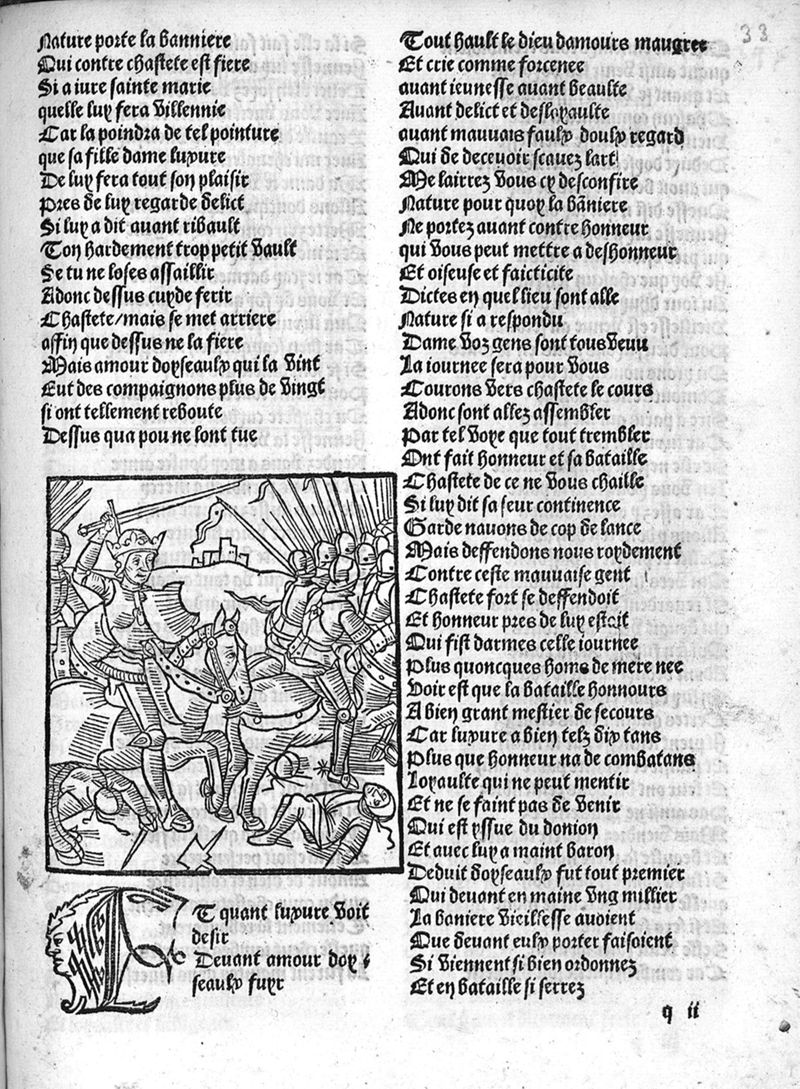 Nature porte la banniere
Qui contre chastete est fiere
Si a iure sainte marie
quelle luy fera villennie
Car la poindra de tel pointure
que sa fille dame luxure
De luy fera tout son plaisir
pres de luy regarde delict
Si luy a dit avant ribault
Ton hardement trop petit vault
Se tu ne loses assaillir
Adonc dessus cuyde ferir
Chastete/mais se met arriere
affin que dessus ne la fiere
Mais amour doyseaulx qui la vint
Eut des compaignons plus de vingt
si ont tellement reboute
Dessus qua pou ne lont tue
ET quant luxure voit
desir
Devant amour doy
seaulx fuyr
33
Tout hault le dieu damours maugree
Et crie comme forcenee
avant ieunesse avant beaulte
Avant delict et desloyaulte
avant mauvais faulx doulx regard
Qui de decevoir scavez lart
Me lairrez vous cy desconfire
Nature pour quoy la bãniere
Ne portez avant contre honneur
qui vous peut mettre a deshonneur
Et oiseuse et faicticite
Dictes en quel lieu sont alle
Nature si a respondu
Dame voz gens sont tous veuu
La iournee sera pour vous
Courons vers chastete le cours
Adonc sont allez assembler
Par tel voye que tout trembler
Ont fait honneur et sa bataille
Chastete de ce ne vous chaille
Si luy dit sa seur continence
Garde navons de cop de lance
Mais deffendons nous roydement
Contre ceste mauvaise gent
Chastete fort se deffendoit
Et honneur pres de luy estoit
Qui fist darmes celle iournee
Plus quoncques homs de mere nee
Voir est que la bataille honnours
A bien grant mestier de secours
Car luxure a bien telz dix tans
Plus que honneur na de combatans
Loyaulte qui ne peut mentir
Et ne se faint pas de venir
Qui est yssue du donion
Et avec luy a maint baron
Deduit doyseaulx fut tout premier
Qui devant en maine ung millier
La baniere vieillesse avoient
Que devant eulx porter faisoient
Si viennent si bien ordonnez
Et en bataille si serrez
q ii